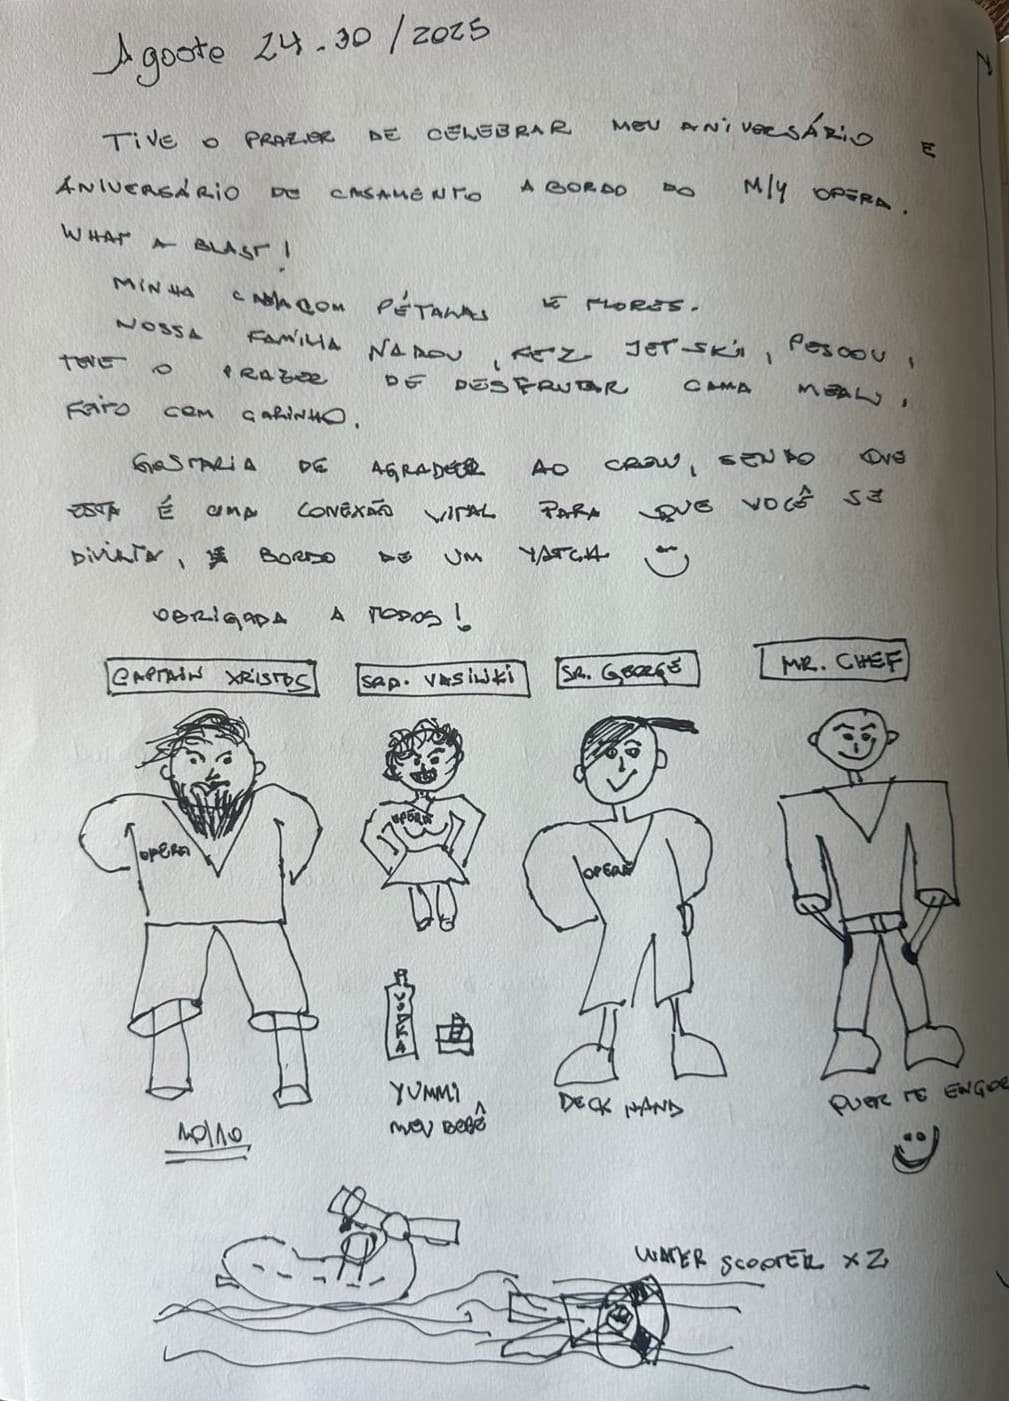 Agosto 24-30/2025
TIVE O PRAZER DE CELEBRAR MEU ANIVERSÁRIO E
ANIVERSÁRIO DE CASAMENTO A BORDO DO M/Y OPERA.
WHAT A BLAST!
MINHA CAMA COM PÉTALAS E FLORES.
NOSSA FAMÍLIA NADOU, FEZ JET-SKI, PESCOU,
TEVE O PRAZER DE DESFRUTAR CAMA MEAL,
FEITO COM CARINHO.
GOSTARIA DE AGRADECER AO CREW, SENDO QUE
ESTA É UMA CONEXÃO VITAL PARA QUE VOCÊ SE
DIVIRTA, BORDO DE UM YATCH
OBRIGADA A TODOS!
CAPTAIN XRISTOS SRA. VASILIKI SR. GEORGE MR. CHEF
OPERA OPERA OPERA
VODKA
YUMMI
MEU BEBÊ
DECK HAND
QUER TE ENGOR
10/10
WATER SCOOTER X2